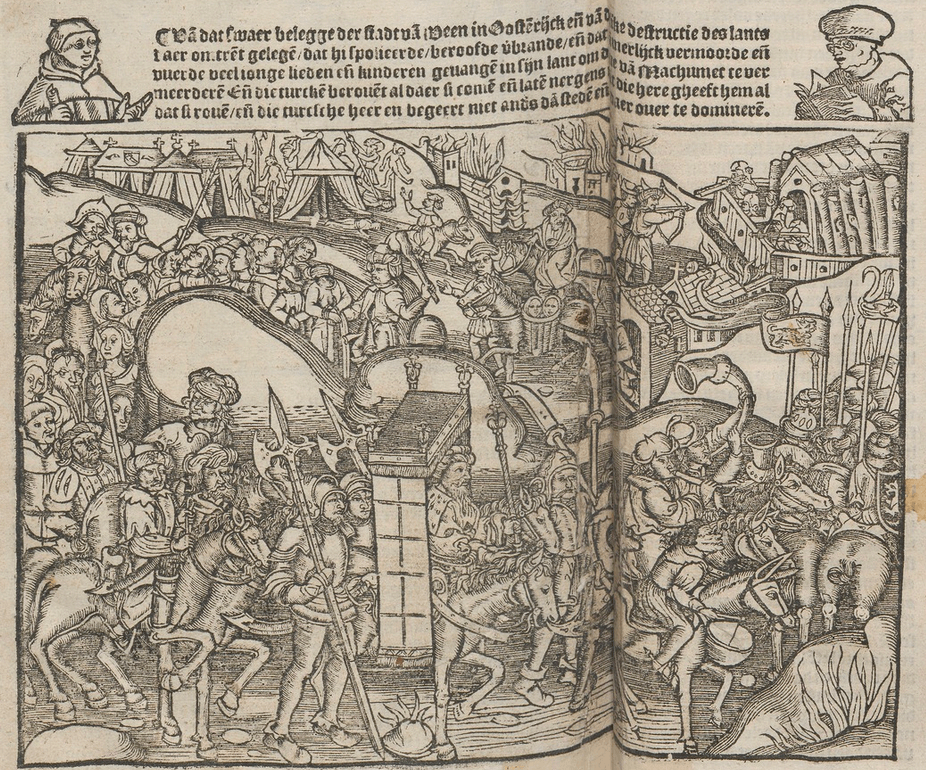 ¶ Vā dat swaer belegge der stadt vā Ween in Oostērijck eñ vā destructie des lants
Iaer gelegē/dat hi spolieerde/beroofde v̄brande/eñ dat vermoorde eñ
vuerde veel ionge lieden eñ kinderen geuangē in sijn lant om vā Machumet te ver
meerderē Eñ die turckē berouēt al daer si comē eñ latē nergens die here gheeft hem al
dat si rouē/eñ die turcsche heer en begeert niet dā stedē eñ ouer te dominerē.